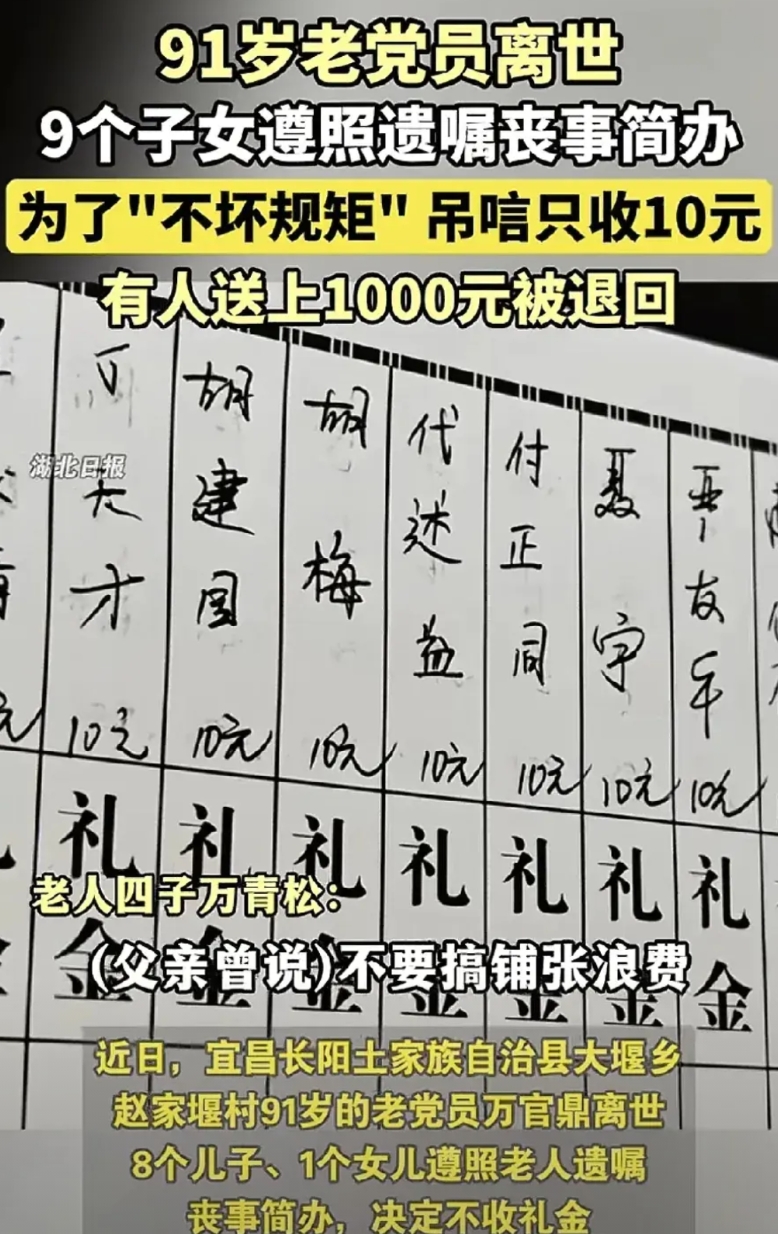 91岁老党员离世
9个子女遵照遗嘱丧事简办
为了"不坏规矩" 吊唁只收10元
有人送上1000元被退回
湖北日报
胡建国 10元 礼金
胡梅 10元 礼金
代述益 10元 礼金
付正同 10元 礼金
聂宇 10元 礼金
10元 礼金
10元 礼金
老人四子万青松：
(父亲曾说)不要搞铺张浪费
近日，宜昌长阳土家族自治县大堰乡
赵家堰村91岁的老党员万官鼎离世
8个儿子、1个女儿遵照老人遗嘱
丧事简办，决定不收礼金